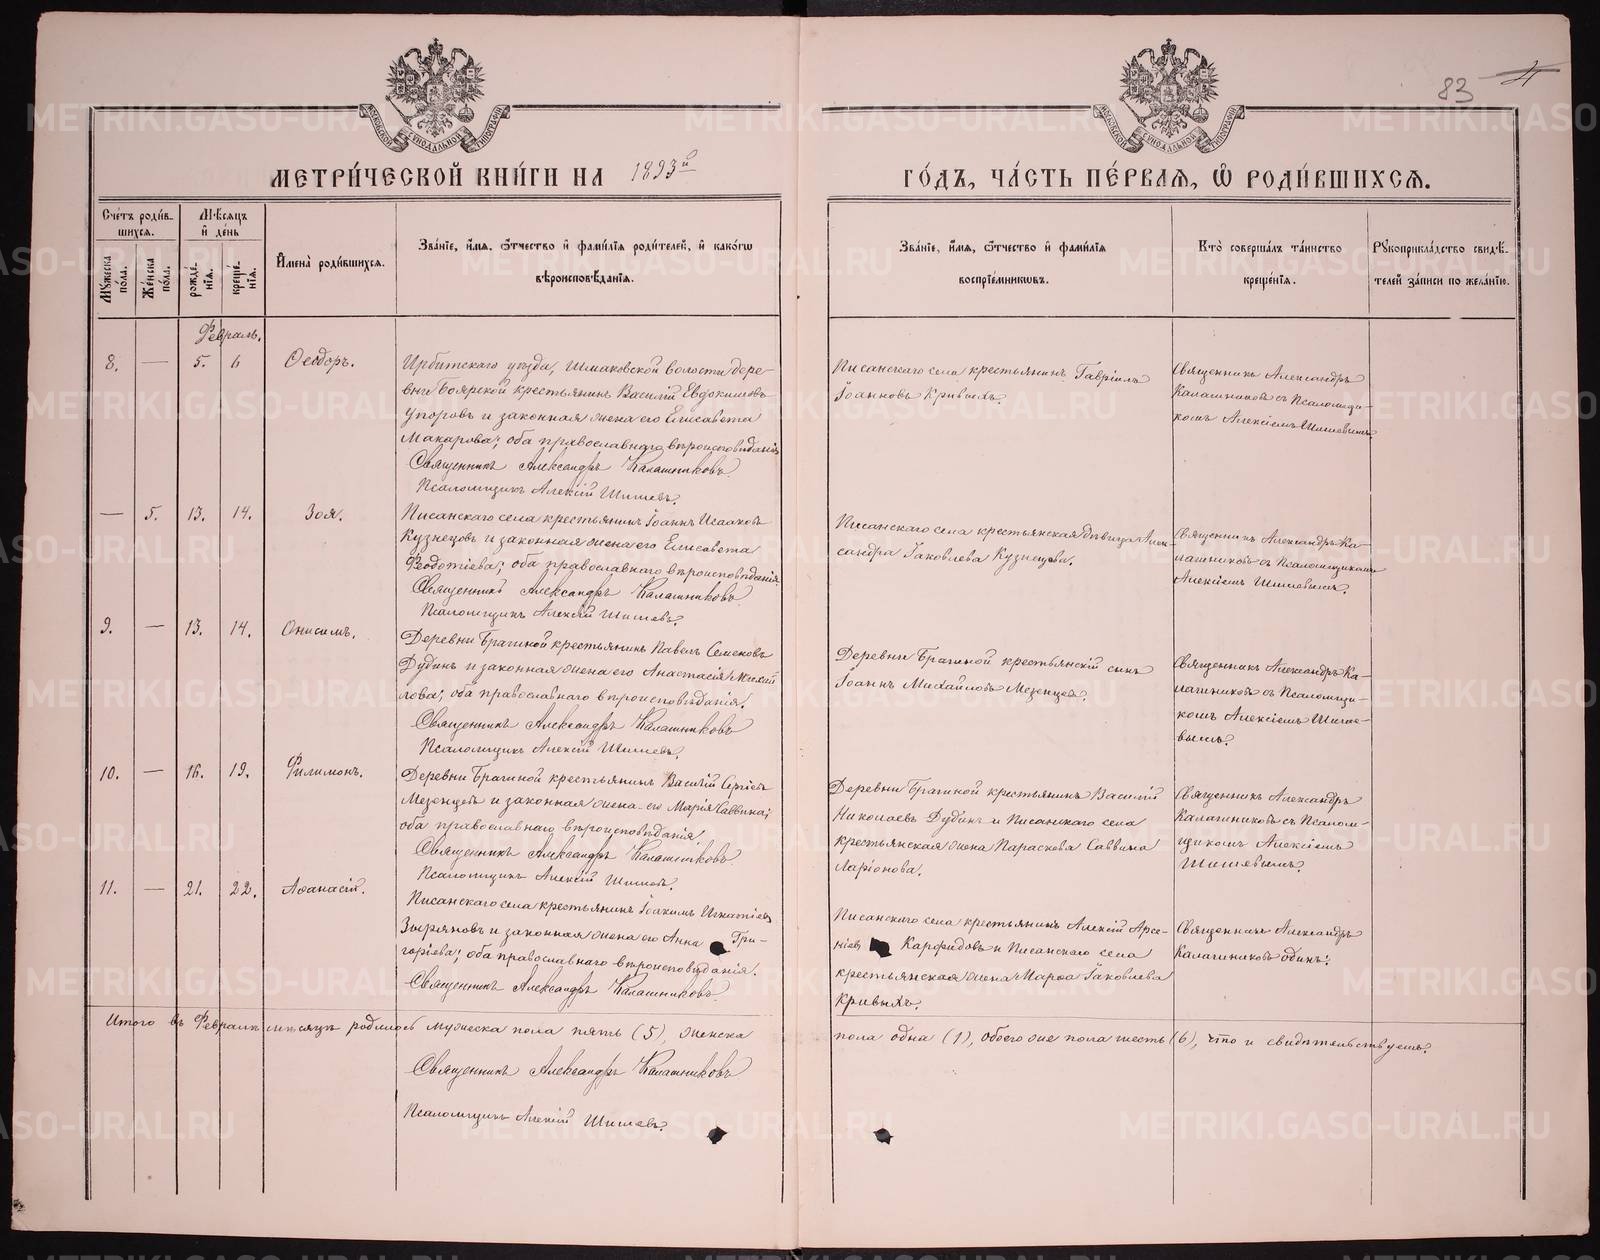 83 4
МОСКОВСКОЙ СѴНОДАЛЬНОЙ ТИПОГРАФІИ
МОСКОВСКОЙ СѴНОДАЛЬНОЙ ТИПОГРАФІИ
МЕТРИ́ЧЕСКОЙ КНИ́ГИ НА 1893й
ГО́ДЪ, ЧА́СТЬ ПЕ́РВАЯ, Ѡ РОДИ́ВШИХСЯ.
Сче́тъ роди́в-
шихся.
Мѣ́сяцъ
и де́нь
Му́жеска по́ла.
Же́нска по́ла.
рожде́нія.
креще́нія.
Имена̀ роди́вшихся.
Зва́ніе, и́мя, ѻ́тчество и фами́лія роди́телей, и како́гѡ
вѣроисповѣ́данія.
Зва́ніе, и́мя, ѻ́тчество и фами́лія
воспріе́мниковъ.
Кто̀ соверша́лъ та́инство
креще́нія.
Рукоприкла́дство свидѣ́-
телей за́писи по жела́нію.
Февраль.
8. — 5. 6 Ѳеодоръ.
Ирбитскаго уѣзда, Шмаковской волости дере-
вни Боярской крестьянинъ Василій Евдокимовъ
Упоровъ и законная жена его Елисавета
Макарова; оба православнаго вѣроисповѣданія.
Священникъ Александръ Калашниковъ.
Псаломщикъ Алексій Шишевъ.
Писанскаго села крестьянинъ Гавріилъ
Іоанновъ Кривыхъ.
Священникъ Александръ
Калашниковъ съ Псаломщи-
комъ Алексіемъ Шишевымъ
— 5. 13. 14. Зоя.
Писанскаго села крестьянинъ Іоаннъ Исааковъ
Кузнецовъ и законная жена его Елисавета
Ѳеодотіева; оба православнаго вѣроисповѣданія.
Священникъ Александръ Калашниковъ.
Псаломщикъ Алексій Шишевъ.
Писанскаго села крестьянская дѣвица Алек-
сандра Іаковлева Кузнецова.
Священникъ Александръ Ка-
лашниковъ съ Псаломщикомъ
Алексіемъ Шишевымъ.
9. — 13. 14. Онисимъ.
Деревни Брагиной крестьянинъ Павелъ Семеновъ
Дубинъ и законная жена его Анастасія Михай
лова; оба православнаго вѣроисповѣданія.
Священникъ Александръ Калашниковъ
Псаломщикъ Алексій Шишевъ.
Деревни Брагиной крестьянскій сынъ
Іоаннъ Михайловъ Мезенцевъ.
Священникъ Александръ Ка-
лашниковъ съ Псаломщи-
комъ Алексіемъ Шише-
вымъ.
10. — 16. 19. Филимонъ.
Деревни Брагиной крестьянинъ Василій Сергіевъ
Мезенцевъ и законная жена его Марія Саввина;
оба православнаго вѣроисповѣданія.
Священникъ Александръ Калашниковъ.
Псаломщикъ Алексій Шишевъ.
Деревни Брагиной крестьянинъ Василій
Николаевъ Дубинъ и Писанскаго села
крестьянская жена Параскева Саввина
Ларіонова.
Священникъ Александръ
Калашниковъ съ Псалом-
щикомъ Алексіемъ
Шишевымъ.
11. — 21. 22. Аѳанасій.
Писанскаго села крестьянинъ Іоакимъ Игнатіевъ
Зыряновъ и законная жена его Анна Гри-
горіева; оба православнаго вѣроисповѣданія.
Священникъ Александръ Калашниковъ.
Писанскаго села крестьянинъ Алексій Арсе-
ніевъ Карфидовъ и Писанскаго села
крестьянская жена Марѳа Іаковлева
Кривыхъ.
Священникъ Александръ
Калашниковъ одинъ.
Итого въ Февралѣ мѣсяцѣ родилось мужеска пола пять (5), женска
пола одна (1), обоего же пола шесть (6), что и свидѣтельствуемъ.
Священникъ Александръ Калашниковъ
Псаломщикъ Алексій Шишевъ.
METRIKI.GASO-URAL.RU